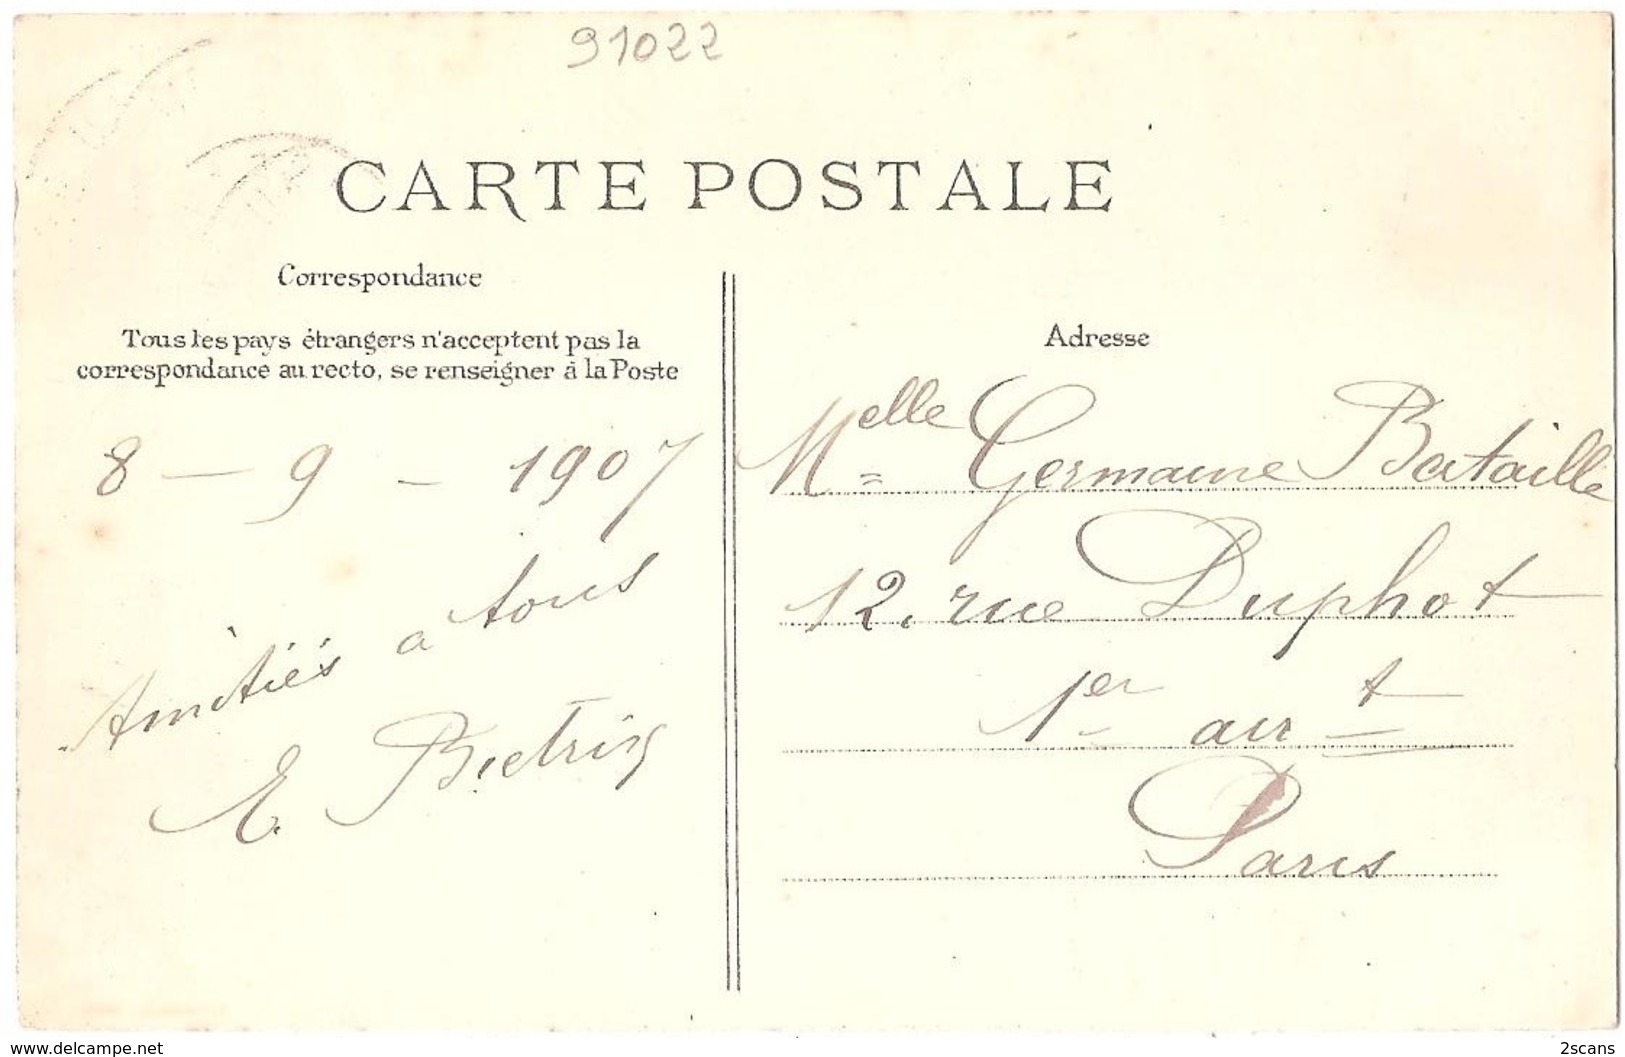 91022
CARTE POSTALE
Correspondance
Tous les pays étrangers n'acceptent pas la
correspondance au recto, se renseigner à la Poste
8 - 9 - 1907
Amitiés à tous
E.
Adresse
Melle Germaine Bataille
12, rue Duphot
1er arrt
Paris
www.delcampe.net
2scans